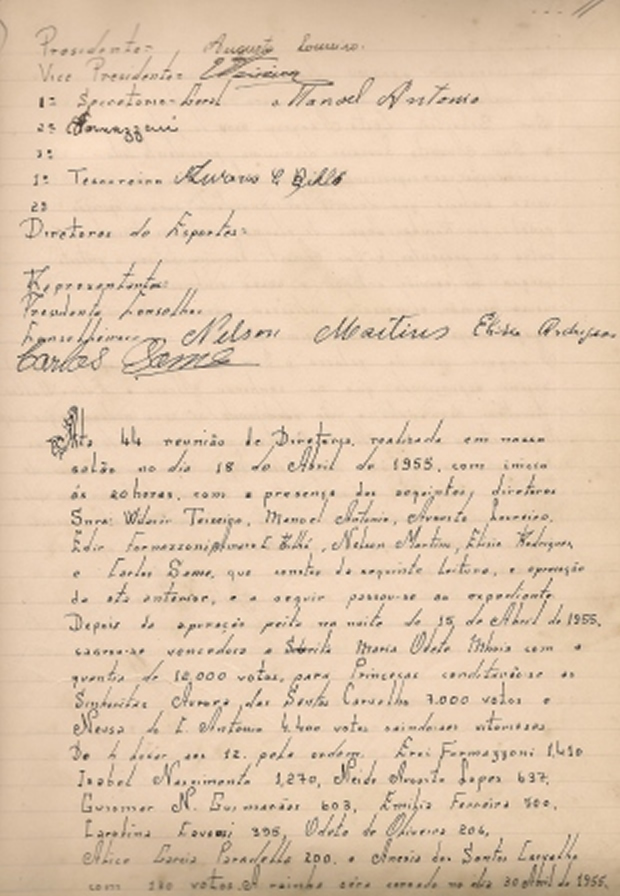 Presidente= Augusto Loureiro.
Vice Presidente= Teixeira
1º Secretario-Geral Manoel Antonio
2º Formazzoni
3º
1º Tesoureiro Alvaro C Billó
2º
Diretores de Esportes=
Representantes
Presidente Conselho
Conselheiros Nelson Martins Elisio Rodrigues
Carlos Some
Ata 44 reunião de Diretoria, realizada em nosso
salão no dia 18 de Abril de 1955, com inicio
ás 20 horas, com a presença dos seguintes, diretores
Snrs: Teixeira, Manoel Antonio, Augusto Loureiro,
Edir Formazzoni, Nelson Martins, Elisio Rodrigues,
e Carlos Some, que constou da seguinte leitura, e aprovação
da ata anterior, e a seguir passou-se ao expediente
Depois da apuração feita na noite de 15 de Abril de 1955,
sagrou-se vencedora a Maria Odete com a
quantia de 10,000 votos, para Princeças as
Sinhoritas Aurora, dos Santos Carvalho 7.000 votos e
Neusa de C. Antonio 4.400 votos vitoriosas
De 4 lugar aos 12. pela ordem. Erci Formazzoni 1,410
Izabel Nascimento 1,270, Neide Augusta Lopes 637,
Guiomar N. Guimarães 603, Emilia Ferreira 500,
Carolina 395, Odete de Oliveira 206,
Alice Garcia 200. e Anesia dos Santos Carvalho
com votos. A rainha será coroada no dia 30 Abril de 1955.